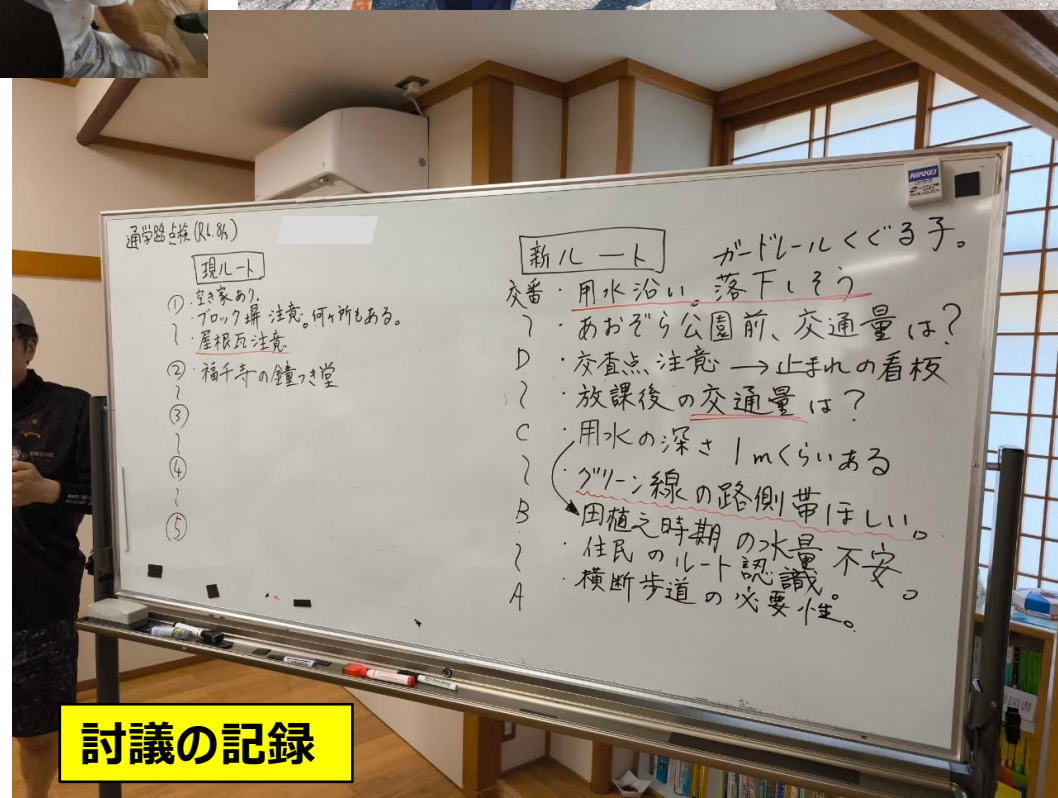 通学路点検(R6.8/3)
現ルート
①・空き家あり。
〜・ブロック塀注意。何ヶ所もある。
・屋根瓦注意
②・福千寺の鐘つき堂
〜
③
〜
④
〜
⑤
新ルート
ガードレールくぐる子。
交番・用水沿い。落下しそう
〜・あおぞら公園前、交通量は?
D・交査点注意→止まれの看板
〜・放課後の交通量は?
C・用水の深さ1mくらいある
〜・グリーン線の路側帯ほしい。
B 田植え時期の水量不安。
〜・住民のルート認識。
A・横断歩道の必要性。
NIKKEI
DRONE
討議の記録